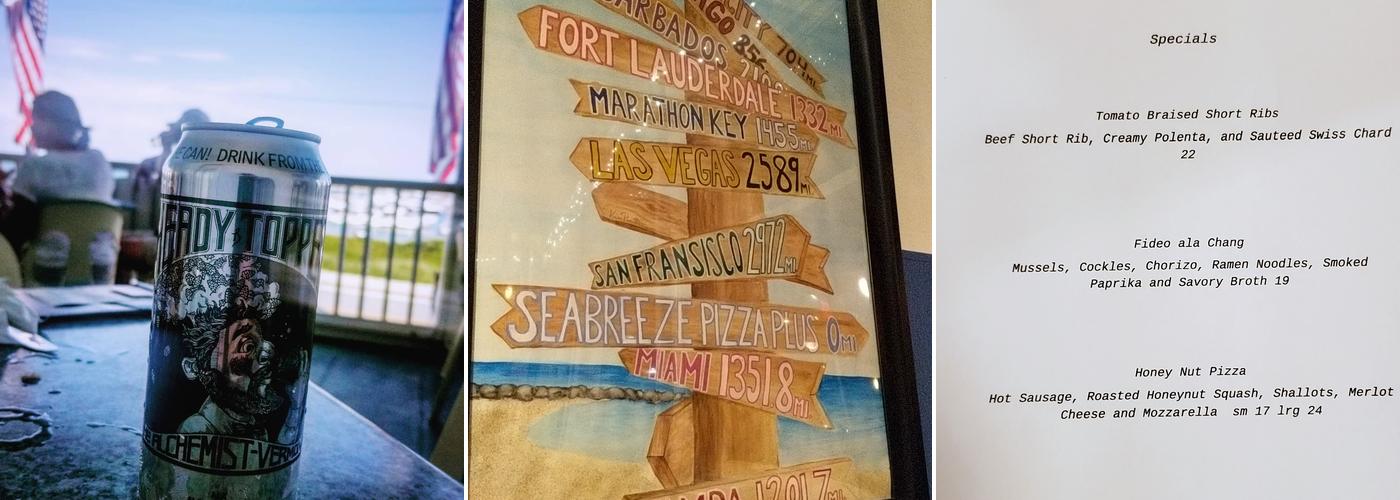 CAN! DRINK FROM
EADY TOPP
ALCHEMIST-VERM
CITY 704 MI.
856
BARBADOS
FORT LAUDERDALE 1332 MI.
MARATHON KEY 1455 MI.
LAS VEGAS 2589 MI.
SAN FRANSISCO 2972 MI.
SEABREEZE PIZZA PLUS 0 MI.
MIAMI 1351.8 MI.
1201.7 MI.
Specials
Tomato Braised Short Ribs
Beef Short Rib, Creamy Polenta, and Sauteed Swiss Chard
22
Fideo ala Chang
Mussels, Cockles, Chorizo, Ramen Noodles, Smoked
Paprika and Savory Broth 19
Honey Nut Pizza
Hot Sausage, Roasted Honeynut Squash, Shallots, Merlot
Cheese and Mozzarella sm 17 lrg 24